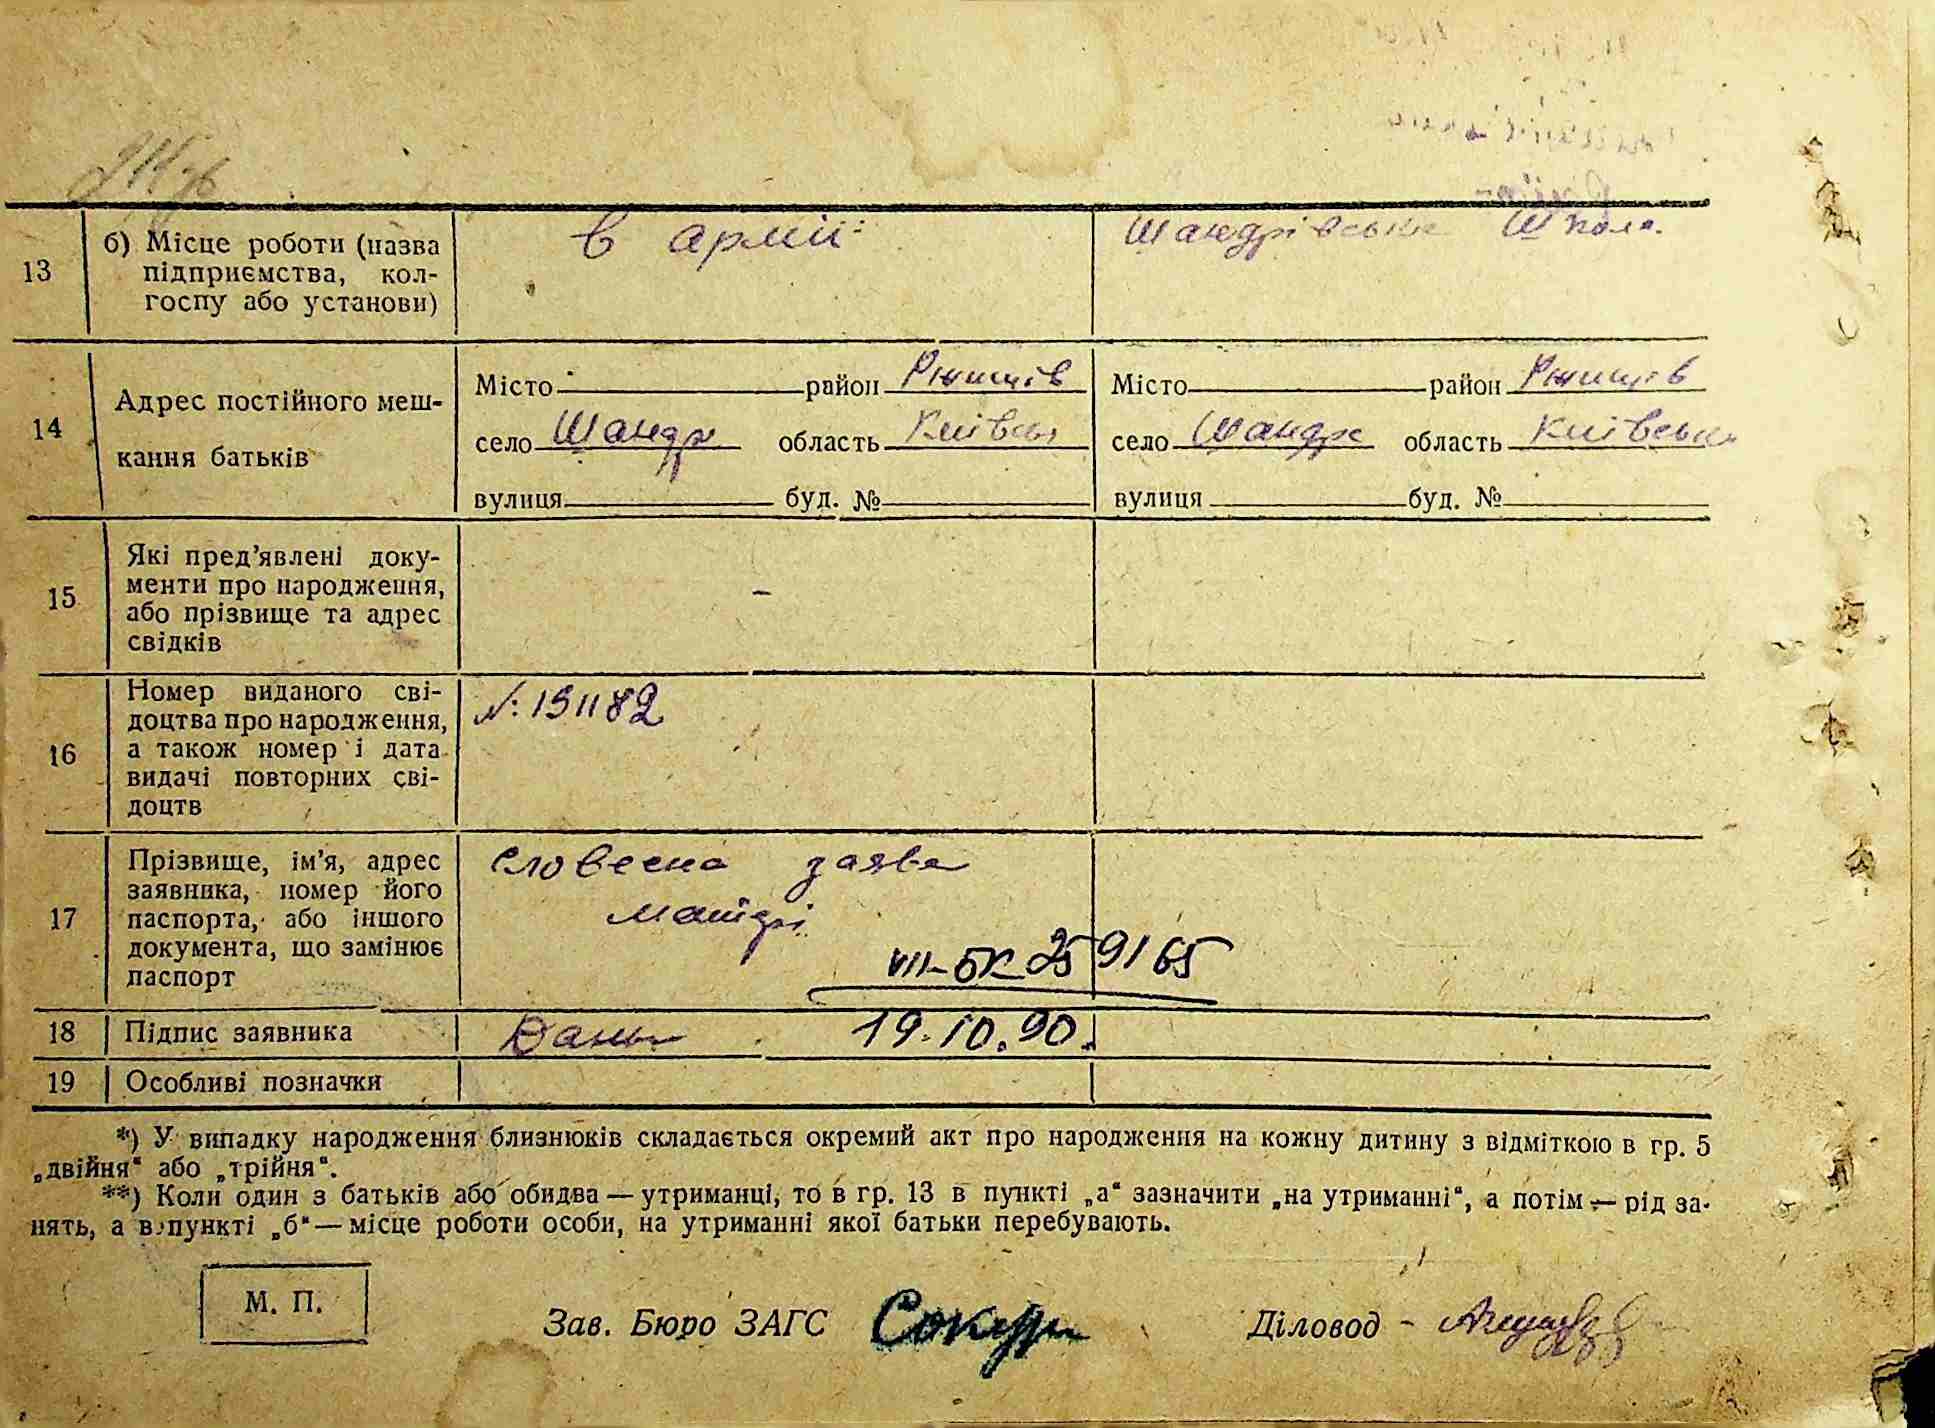 13
б) Місце роботи (назва
підприємства, кол-
госпу або установи)
в армії
Шандрівська Школа.
14
Адрес постійного меш-
кання батьків
Місто район Ржищів
село Шандра область Київськ
вулиця буд. №
Місто район Ржищів
село Шандра область Київська
вулиця буд. №
15
Які пред’явлені доку-
менти про народження,
або прізвище та адрес
свідків
-
16
Номер виданого сві-
доцтва про народження,
а також номер і дата
видачі повторних сві-
доцтв
№: 131182
17
Прізвище, ім’я, адрес
заявника, номер його
паспорта, або іншого
документа, що замінює
паспорт
Словесна заява
матірі
VIII-БК 259165
18 Підпис заявника
19.10.90.
19 Особливі позначки
*) У випадку народження близнюків складається окремий акт про народження на кожну дитину з відміткою в гр. 5
„двійня“ або „трійня“.
**) Коли один з батьків або обидва — утриманці, то в гр. 13 в пункті „а“ зазначити „на утриманні“, а потім — рід за-
нять, а в пункті „б“ — місце роботи особи, на утриманні якої батьки перебувають.
М. П.
Зав. Бюро ЗАГС
Діловод -